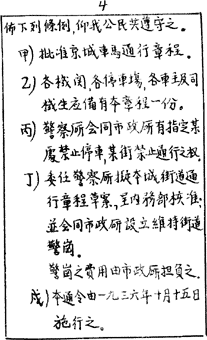 4
佈下列條例,仰我公民共遵守之。
甲) 批准京城車馬通行章程。
乙) 各機関,各停車場,各車主及司
機生应備有本章程一份。
丙) 警察所会同市政所有指定某
處禁止停車,某街禁止通行之权。
丁) 委任警察所擬本城街道通
行章程草案,呈内務部核准;
並会同市政所設立維持街道
警崗。
警崗之費用由市政所担負之。
戊) 本通令由一九三六年十月十五日
施行之。